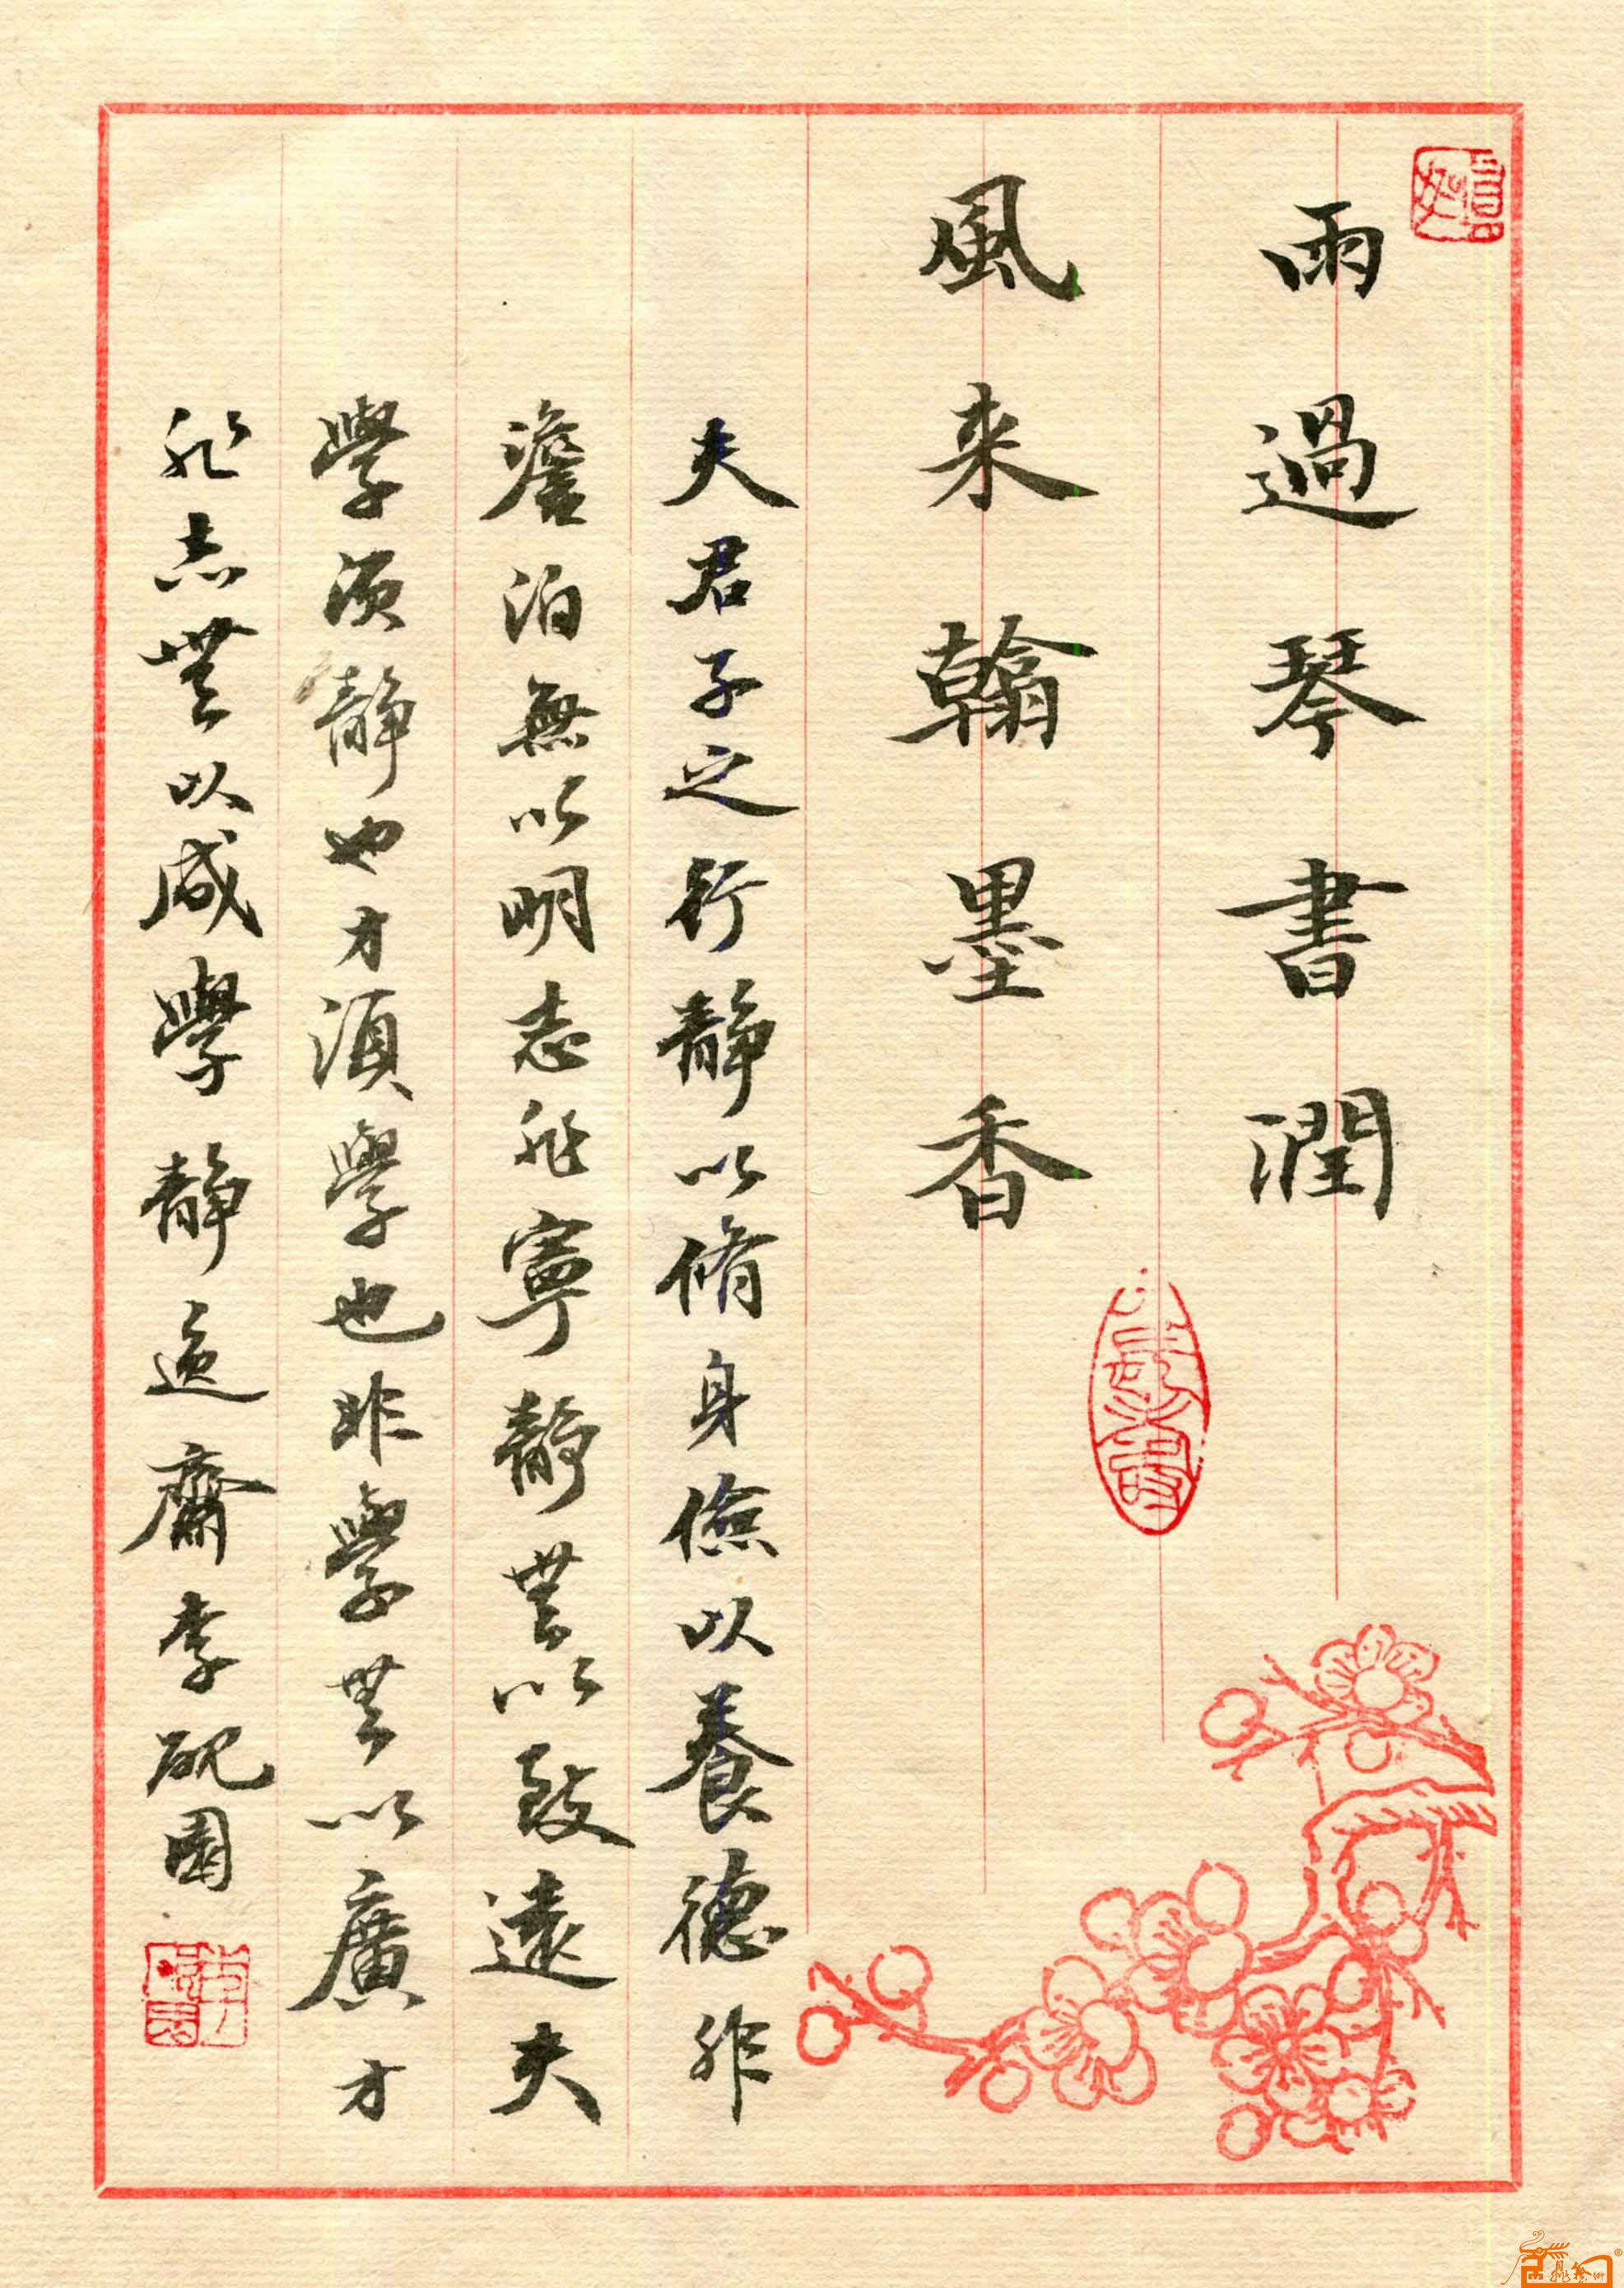 雨過琴書潤
風來翰墨香
夫君子之行靜以脩身儉以養德非
澹泊無以明志非寧靜無以致遠夫
學須靜也才須學也非學無以廣才
非志無以成學靜逸齋李硯園